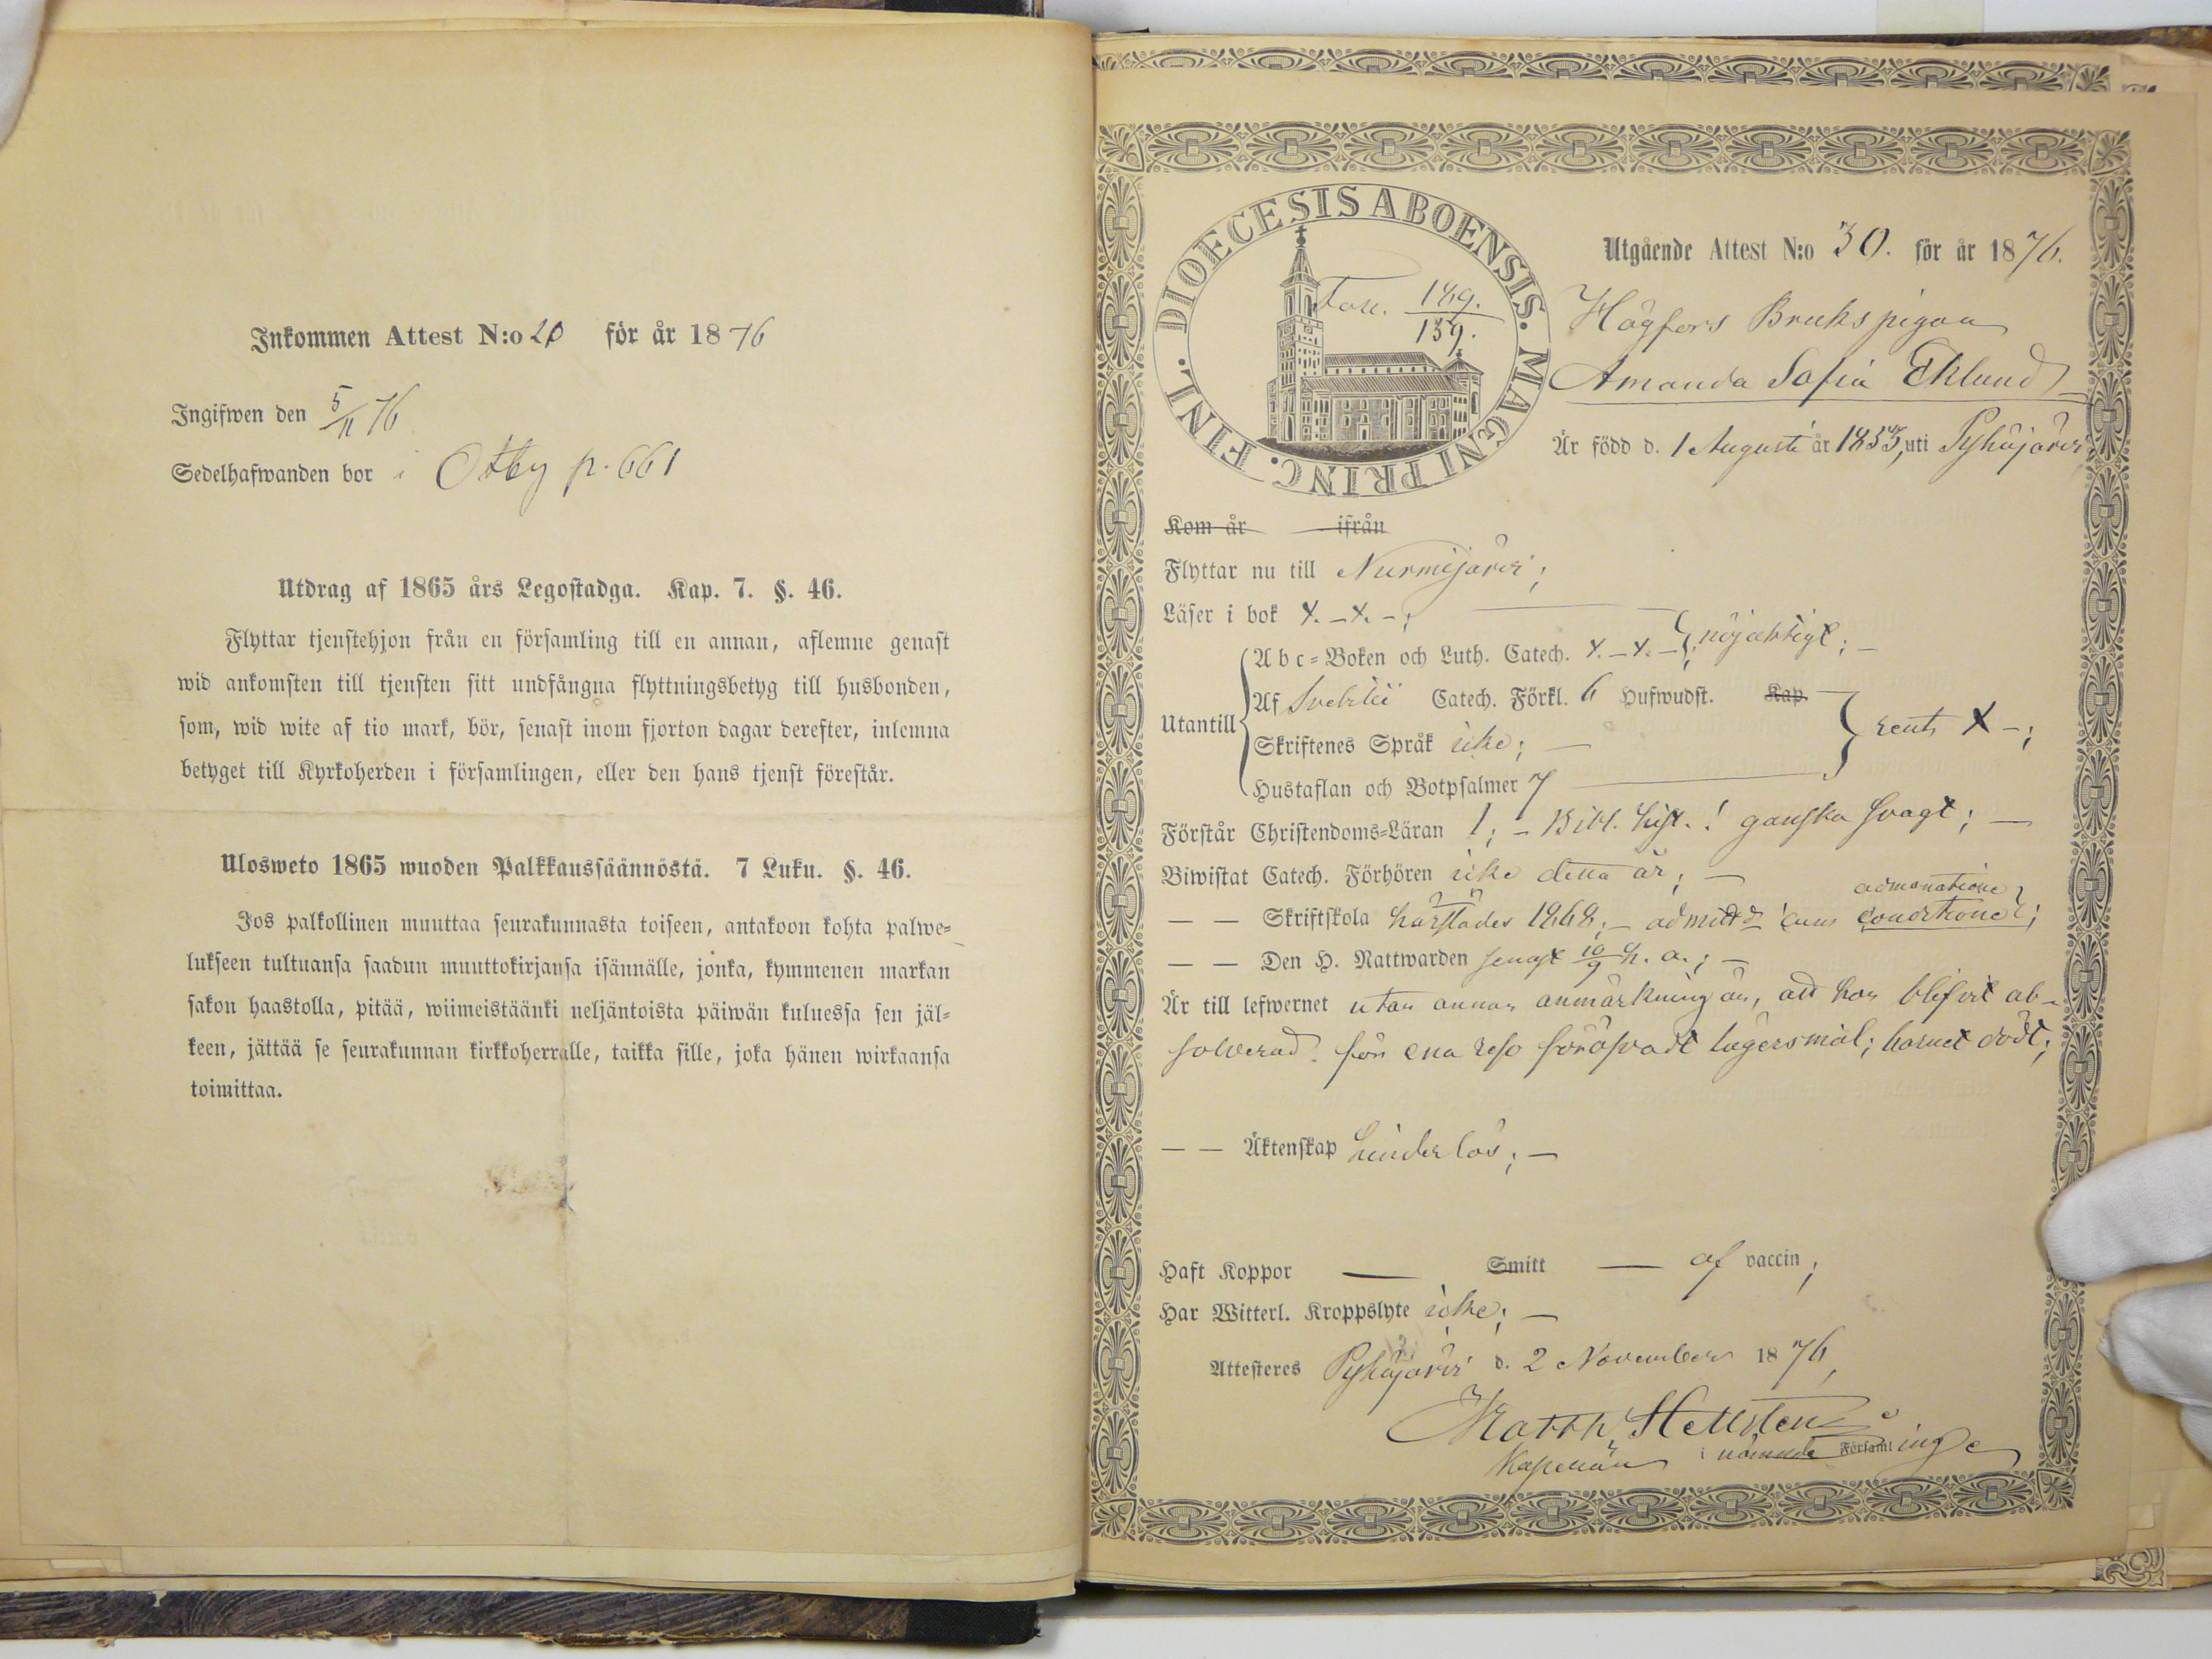 Inkommen Attest N:o 20 för år 1876
Ingifwen den 5/11 76
Sedelhafwanden bor i Otby p. 661
Utdrag af 1865 års Legostadga. Kap. 7. §. 46.
Flyttar tjenstehjon från en församling till en annan, aflemne genast
wid ankomsten till tjensten sitt undfångna flyttningsbetyg till husbonden,
som, wid wite af tio mark, bör, senast inom fjorton dagar derefter, inlemna
betyget till Kyrkoherden i församlingen, eller den hans tjenst förestår.
Ulosweto 1865 wuoden Palkkaussäännöstä. 7 Luku. §. 46.
Jos palkollinen muuttaa seurakunnasta toiseen, antakoon kohta palwe-
lukseen tultuansa saadun muuttokirjansa isännälle, jonka, kymmenen markan
sakon haastolla, pitää, wiimeistäänki neljäntoista päiwän kuluessa sen jäl-
keen, jättää se seurakunnan kirkkoherralle, taikka sille, joka hänen wirkaansa
toimittaa.
DIOECESIS ABOENSIS. MAGNI PRINC. FINL.
189. 139.
Utgående Attest N:o 30. för år 1876.
Högfors Bruks pigan
Amanda Sofia Eklund
Är född d. 1 Augusti år 1853, uti Pyhäjärvi
Kom år ifrån
Flyttar nu till Nurmijärvi;
Läser i bok X. - X. - ;
Abc=Boken och Luth. Catech. X. - X. - ; nöjaktigt; -
Utantill Af Svebilii Catech. Förkl. 6 Hufwudst. Kap. rent X - ;
Skriftenes Språk icke; -
Hustaflan och Botpsalmer 7
Förstår Christendoms=Läran 1; - Bibl. hist. ! ganska svagt; -
Biwistat Catech. Förhören icke detta år; -
admonatione
- - Skriftskola härstädes 1868; - admitt. cum conditione;
- - Den H. Nattwarden senast 10/9 h. a.; -
Är till lefwernet utan annan anmärkning än, att hon blifvit ab-
solverad för ena reso föröfvadt lägersmål; barnet dödt;
- - Äktenskap hinderlös; -
Haft Koppor — Smitt — af vaccin;
Har Witterl. Kroppslyte icke; -
Attesteres Pyhäjärvi d. 2 November 1876,
Matth. Hellsten
Kapellan i nämnde Församling